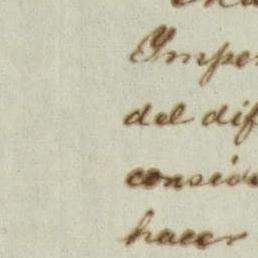 Impe
del dif
conside
hacer